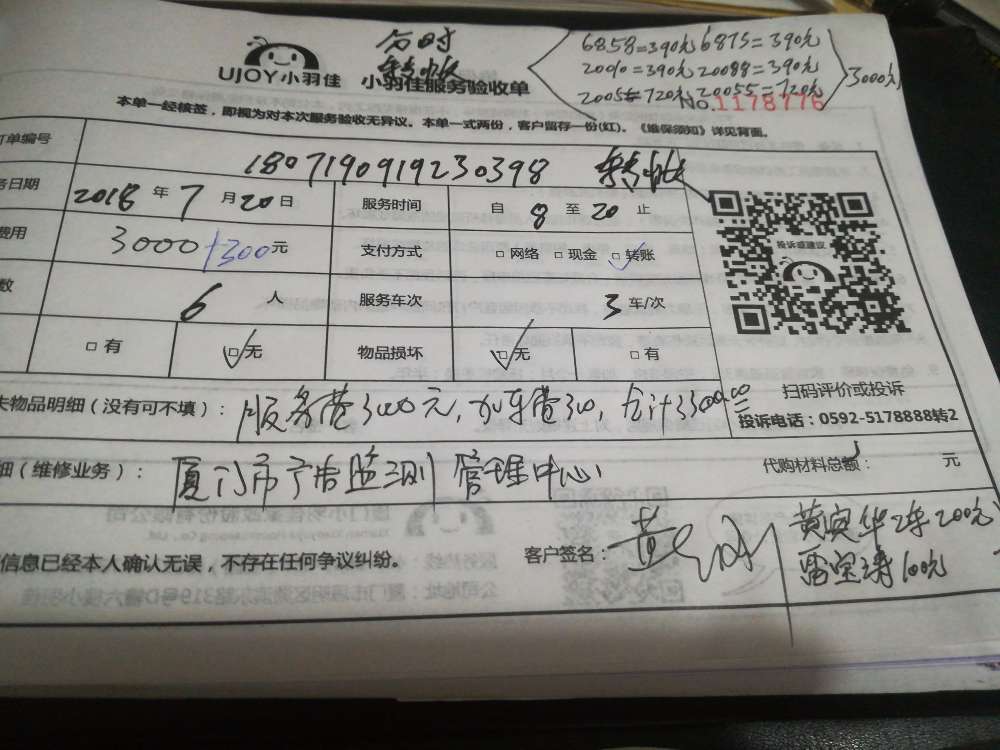 分时
转账
6858=390元 6875=390元
20090=390元 20088=390元
20054=720元 20055=720元
3000元
UJOY小羽佳 小羽佳服务验收单
No.1178776
本单一经核签，即视为对本次服务验收无异议。本单一式两份，客户留存一份(红)。《维保须知》详见背面。
订单编号 1807190919230398 转账
务日期 2018 年 7 月 20 日 服务时间 自 8 至 20 止
费用 3000+300 元 支付方式 □ 网络 □ 现金 □ 转账
投诉或建议
数 6 人 服务车次 3 车/次
□ 有 □ 无 物品损坏 □ 无 □ 有
失物品明细（没有可不填）： 服务费3000元，加车费300，合计3300.00
扫码评价或投诉
投诉电话：0592-5178888转2
细（维修业务）： 厦门市广告监测管理中心 代购材料总额： 元
信息已经本人确认无误，不存在任何争议纠纷。 客户签名：
黄奕华2车200元
雷宝诗100元